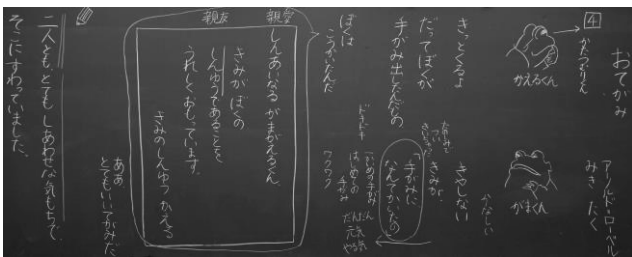 おてがみ
アーノルド・ローベル
みき たく
4
かたつむりくん
かえるくん
がまくん
きっとくるよ
きやしない
かなしい
だってぼくが
きみが
手がみ出したんだもの
「手がみに
なんてかいたの
ドキドキ
はじめての
手がみ
ワクワク
だんだん
元気
やる気
ぼくは
こうかいたんだ
親愛
親友
しんあいなる がまがえるくん
きみが ぼくの
しんゆうであることを
うれしくおもっています。
きみのしんゆう かえる
ああ
とてもいいてがみだ
二人とも、とてもしあわせな気もちで、
そこにすわっていました。